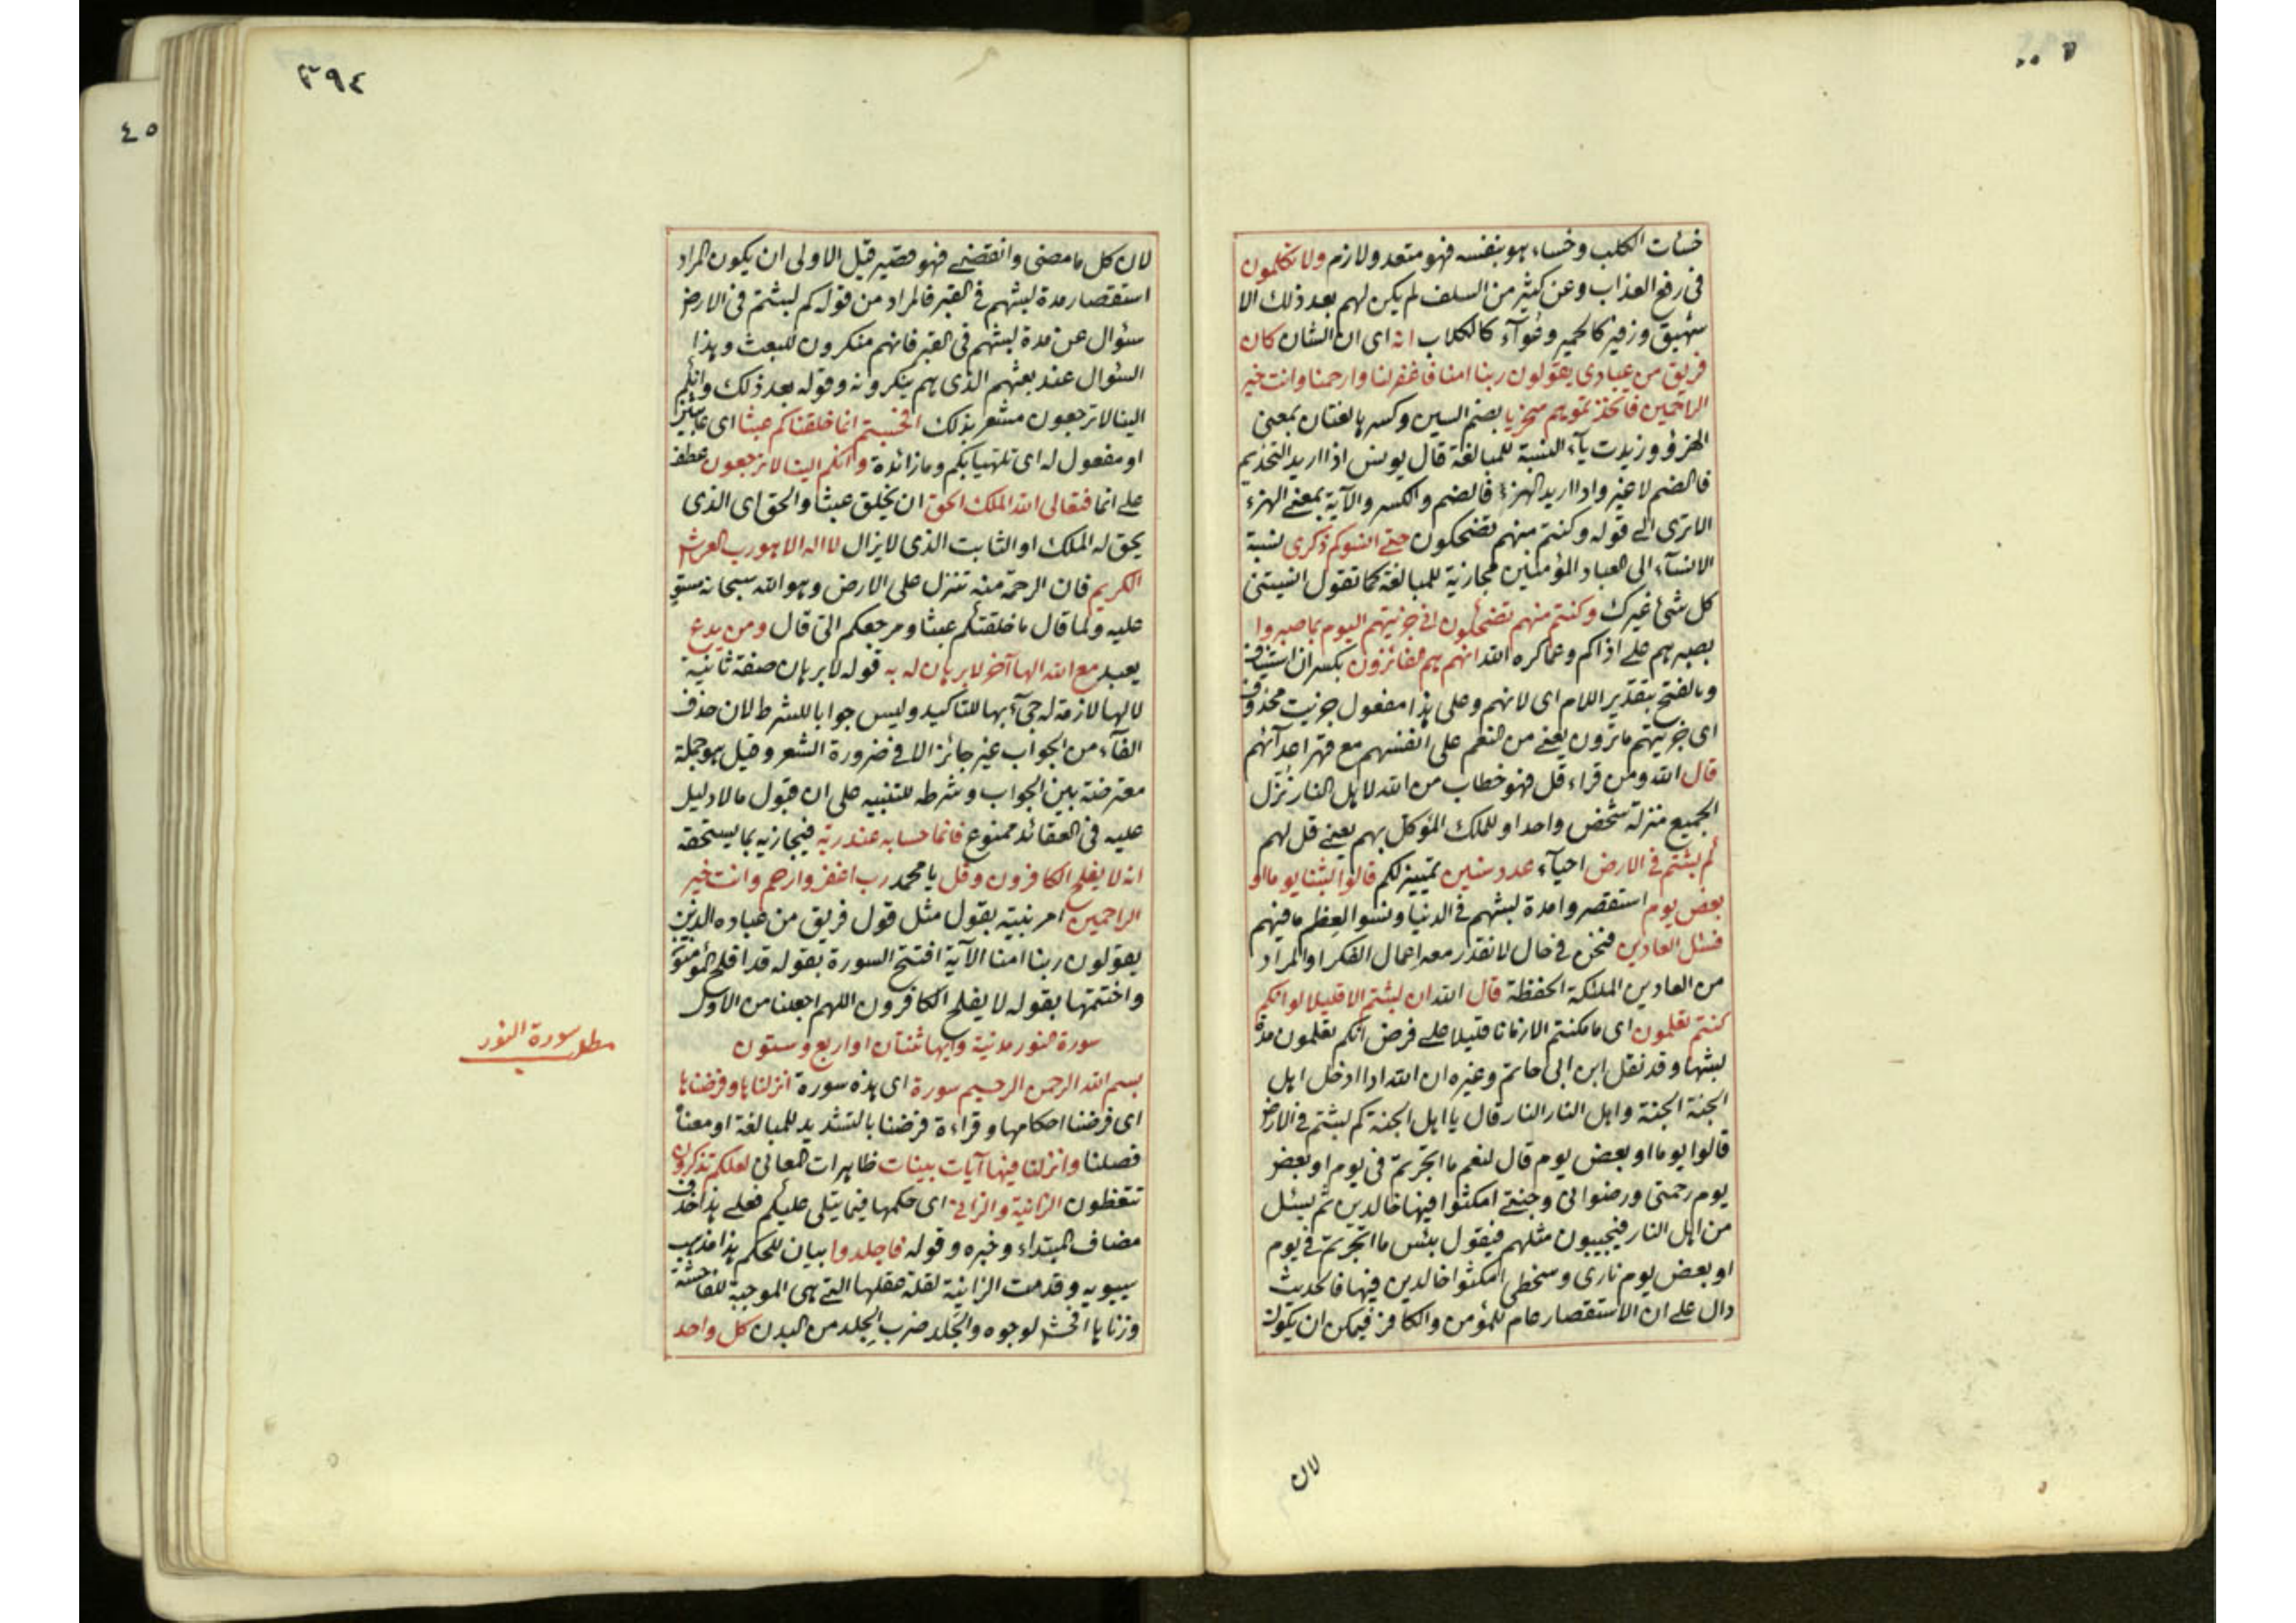 خسأت الكلب وخساء هو بنفسه فهو متعد ولازم ولا تكلمون
فى رفع العذاب وعن كثير من السلف لم يكن لهم بعد ذلك الا
شهيق وزفير كالحمير وعوآء كالكلاب انه اى ان الشان كان
فريق من عبادى يقولون ربنا امنا فاغفرلنا وارحمنا وانت خير
الراحمين فاتخذتموهم سخريا بضم السين وكسرها لغتان بمعنى
الهزؤ وزيدت يآء النسبة للمبالغة قال يونس اذا اريد التخديم
فالضم لا غير واذا اريد الهزء فالضم والكسر والآية بمعنى الهزء
الا ترى الى قوله وكنتم منهم تضحكون حتى انسوكم ذكرى نسبة
الانسآء الى العباد المؤمنين مجازية للمبالغة كما تقول انسيتنى
كل شئ غيرك وكنتم منهم تضحكون انى جزيتهم اليوم بما صبروا
بصبرهم على اذاكم وعماكره الله انهم هم الفائزون بكسر ان استيناف
وبالفتح بتقدير اللام اى لانهم وعلى هذا مفعول جزيت محذوف
اى جزيتهم ماترون يعنى من النعم على انفسهم مع قهر اعدآئهم
قال الله ومن قراء قل فهو خطاب من الله لاهل النار نزل
الجميع منزلة شخص واحد او للملك المؤكل بهم يعنى قل لهم
كم لبثتم فى الارض احيآء عدد سنين تمييز لكم قالوا لبثنا يوما او
بعض يوم استقصروا مدة لبثهم فى الدنيا ونسوا لعظم ما فيهم
فسئل العادين فنحن فى حال لا نقدر معه اعمال الفكر او المراد
من العادين الملئكة الحفظة قال الله ان لبثتم الا قليلا لو انكم
كنتم تعلمون اى ما مكثتم الا زمانا قليلا على فرض انكم تعلمون مدة
لبثها وقد نقل ابن ابى حاتم وغيره ان الله اذا ادخل اهل
الجنة الجنة واهل النار النار قال يا اهل الجنة كم لبثتم فى الارض
قالوا يوما او بعض يوم قال لنعم ما اتجرتم فى يوم او بعض
يوم رحمتى ورضوانى وجنتى امكثوا فيها خالدين ثم يسئل
من اهل النار فيجيبون مثلهم فيقول بئس ما اتجرتم فى يوم
او بعض يوم نارى وسخطى امكثوا خالدين فيها فالحديث
دال على ان الاستقصار عام للمؤمن والكافر فيمكن ان يكون
لان
٣٩٤
لان كل ما مضى وانقضى فهو قصير قيل الاولى ان يكون المراد
استقصار مدة لبثهم فى القبر فالمراد من قوله كم لبثتم فى الارض
سئوال عن مدة لبثهم فى القبر فانهم منكرون للبعث وهذا
السئوال عند بعثهم الذى هم ينكرونه وقوله بعد ذلك وانكم
الينا لا ترجعون مشعر بذلك افحسبتم انما خلقناكم عبثا اى عابثين
او مفعول له اى تلهيا بكم وما زائدة وانكم الينا لا ترجعون عطف
على انما فتعالى الله الملك الحق ان يخلق عبثا والحق اى الذى
يحق له الملك او الثابت الذى لا يزال لا اله الا هو رب العرش
الكريم فان الرحمة منه تتنزل على الارض وهو الله سبحانه مستو
عليه ولما قال ما خلقتكم عبثا ومرجعكم الى قال ومن يدع
يعبد مع الله الها آخر لا برهان له به قوله لا برهان صفة ثانية
لالها لازمة له جىء بها للتاكيد وليس جوابا للشرط لان حذف
الفآء من الجواب غير جائز الا فى ضرورة الشعر وقيل هو جملة
معترضة بين الجواب وشرطه للتنبيه على ان قبول ما لا دليل
عليه فى العقائد ممنوع فانما حسابه عند ربه فيجازيه بما يستحقه
انه لا يفلح الكافرون وقل يا محمد رب اغفر وارحم وانت خير
الراحمين امر نبيه بقول مثل قول فريق من عباده الذين
يقولون ربنا امنا الآية افتتح السورة بقوله قد افلح المؤمنون
واختتمها بقوله لا يفلح الكافرون اللهم اجعلنا من الاول
سورة النور مدنية وآيها ثنتان او اربع وستون
مطلب سورة النور
بسم الله الرحمن الرحيم سورة اى هذه سورة انزلناها وفرضناها
اى فرضنا احكامها وقراءة فرضنا بالتشديد للمبالغة او معناه
فصلنا وانزلنا فيها آيات بينات ظاهرات المعانى لعلكم تذكرون
تتعظون الزانية والزانى اى حكمها فيما يتلى عليكم فعلى هذا حذف
مضاف المبتداء وخبره وقوله فاجلدوا بيان للحكم هذا مذهب
سيبويه وقدمت الزانية لقلة عقلها التى هى الموجبة للفاحشة
وزناها افحش لوجوه والجلد ضرب الجلد من البدن كل واحد